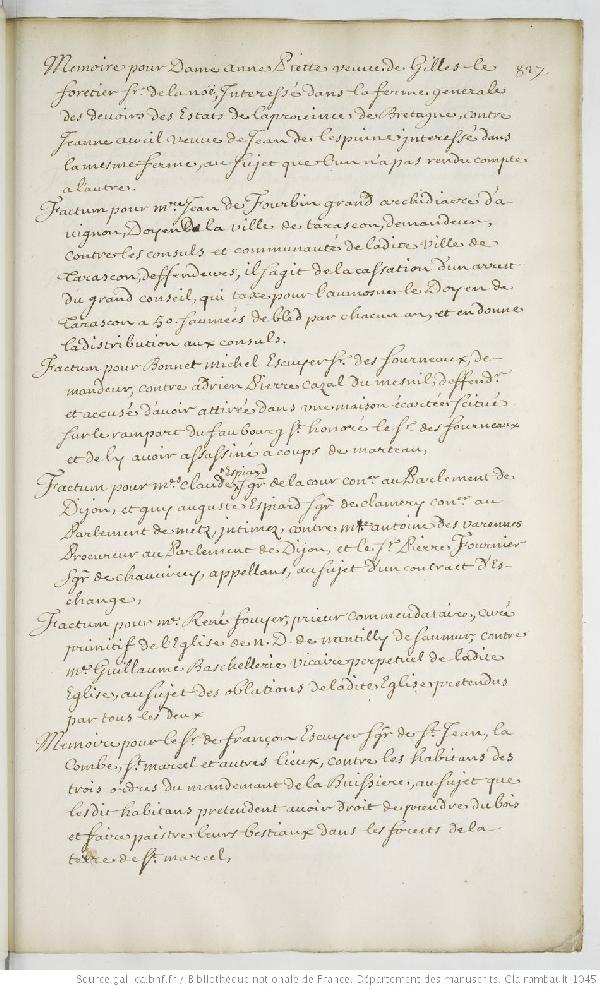 827.
Memoire pour Dame anne Piette veuve de Gilles le
foretier Sr. de la noë, Interessé dans la ferme generale
des devoirs des Estats de la province de Bretagne, contre
Jeanne avril veuve de Jean de lespine interessé dans
la mesme ferme, au sujet que l'un n'a pas rendu compte
a l'autre.
Factum pour mre. Jean de Fourbin grand archidiacre d'a-
vignon, Doyen de la ville de tarascon, demandeur,
contre les consuls et communautés de ladite ville de
Tarascon, deffendeurs, il s'agit de la cassation d'un arrest
du grand conseil, qui taxe pour l'aumosne le Doyen de
Tarascon a 50 saumées de bled par chacun an, et en donne
la distribution aux consuls.
Factum pour Bonnet michel Escuyer Sr. des fourneaux, de-
mandeur, contre adrien Pierre cazal du mesnil, deffendr.
et accusé d'avoir attirée dans une maison écartée scituée
sur le rempart du faubourg St. honoré le Sr. des fourneaux
et de ly avoir assassiné a coups de marteau,
Factum pour mrs. Claude Espiard Sgr. de la cour coner. au Parlement de
Dijon, et guy auguste Espiard Sgr. de clamery coner. au
Parlement de metz, intimez, contre me. antoine des varennes
Procureur au Parlement de Dijon, et le Sr. Pierre Fournier
Sgr. de chauvirey, appellans, au sujet d'un contract d'Es-
change,
Factum pour mr. René fouyer, prieur commendataire, curé
primitif de l'Eglise de n. D. de nantilly de saumur, contre
mre. Guillaume Baschellerie vicaire perpetuel de ladite
Eglise, au sujet des oblations de ladite Eglise pretendus
par tous les deux
Memoire pour le Sr. de françon Escuyer Sgr. de St. Jean, la
Combe, St. marcel et autres lieux, contre les habitans des
trois ordres du mandement de la Buissiere, au sujet que
lesdit habitans pretendent avoir droit de prendre du bois
et faire paistre leurs bestiaux dans les forests de la
terre de St. marcel,
Source gallica.bnf.fr / Bibliothèque nationale de France. Département des manuscrits. Clairambault 1045